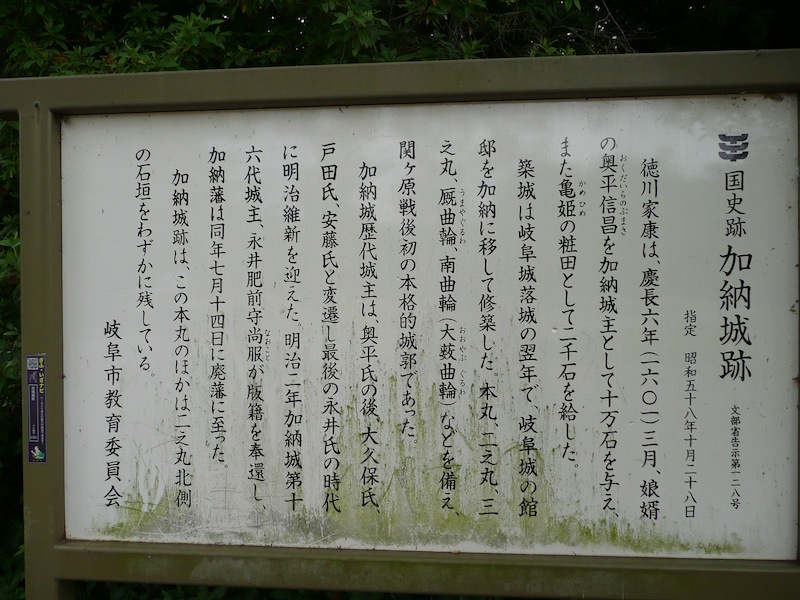 国史跡 加納城跡
文部省告示第一二八号
指定 昭和五十八年十月二十八日
徳川家康は、慶長六年(一六〇一)三月、娘婿
の奥平信昌を加納城主として十万石を与え、
おくだいらのぶまさ
また亀姫の粧田として二千石を給した。
かめひめ
築城は岐阜城落城の翌年で、岐阜城の館
邸を加納に移して修築した。本丸、二之丸、三
之丸、厩曲輪、南曲輪(大薮曲輪)などを備え、
うまやぐるわ
おおやぶ ぐるわ
関ヶ原戦後初の本格的城郭であった。
加納城歴代城主は、奥平氏の後、大久保氏、
戸田氏、安藤氏と変遷し最後の永井氏の時代
に明治維新を迎えた。明治二年加納城第十
六代城主、永井肥前守尚服が版籍を奉還し、
なおこと
加納藩は同年七月十四日に廃藩に至った。
加納城跡は、この本丸のほかは二之丸北側
の石垣をわずかに残している。
岐阜市教育委員会